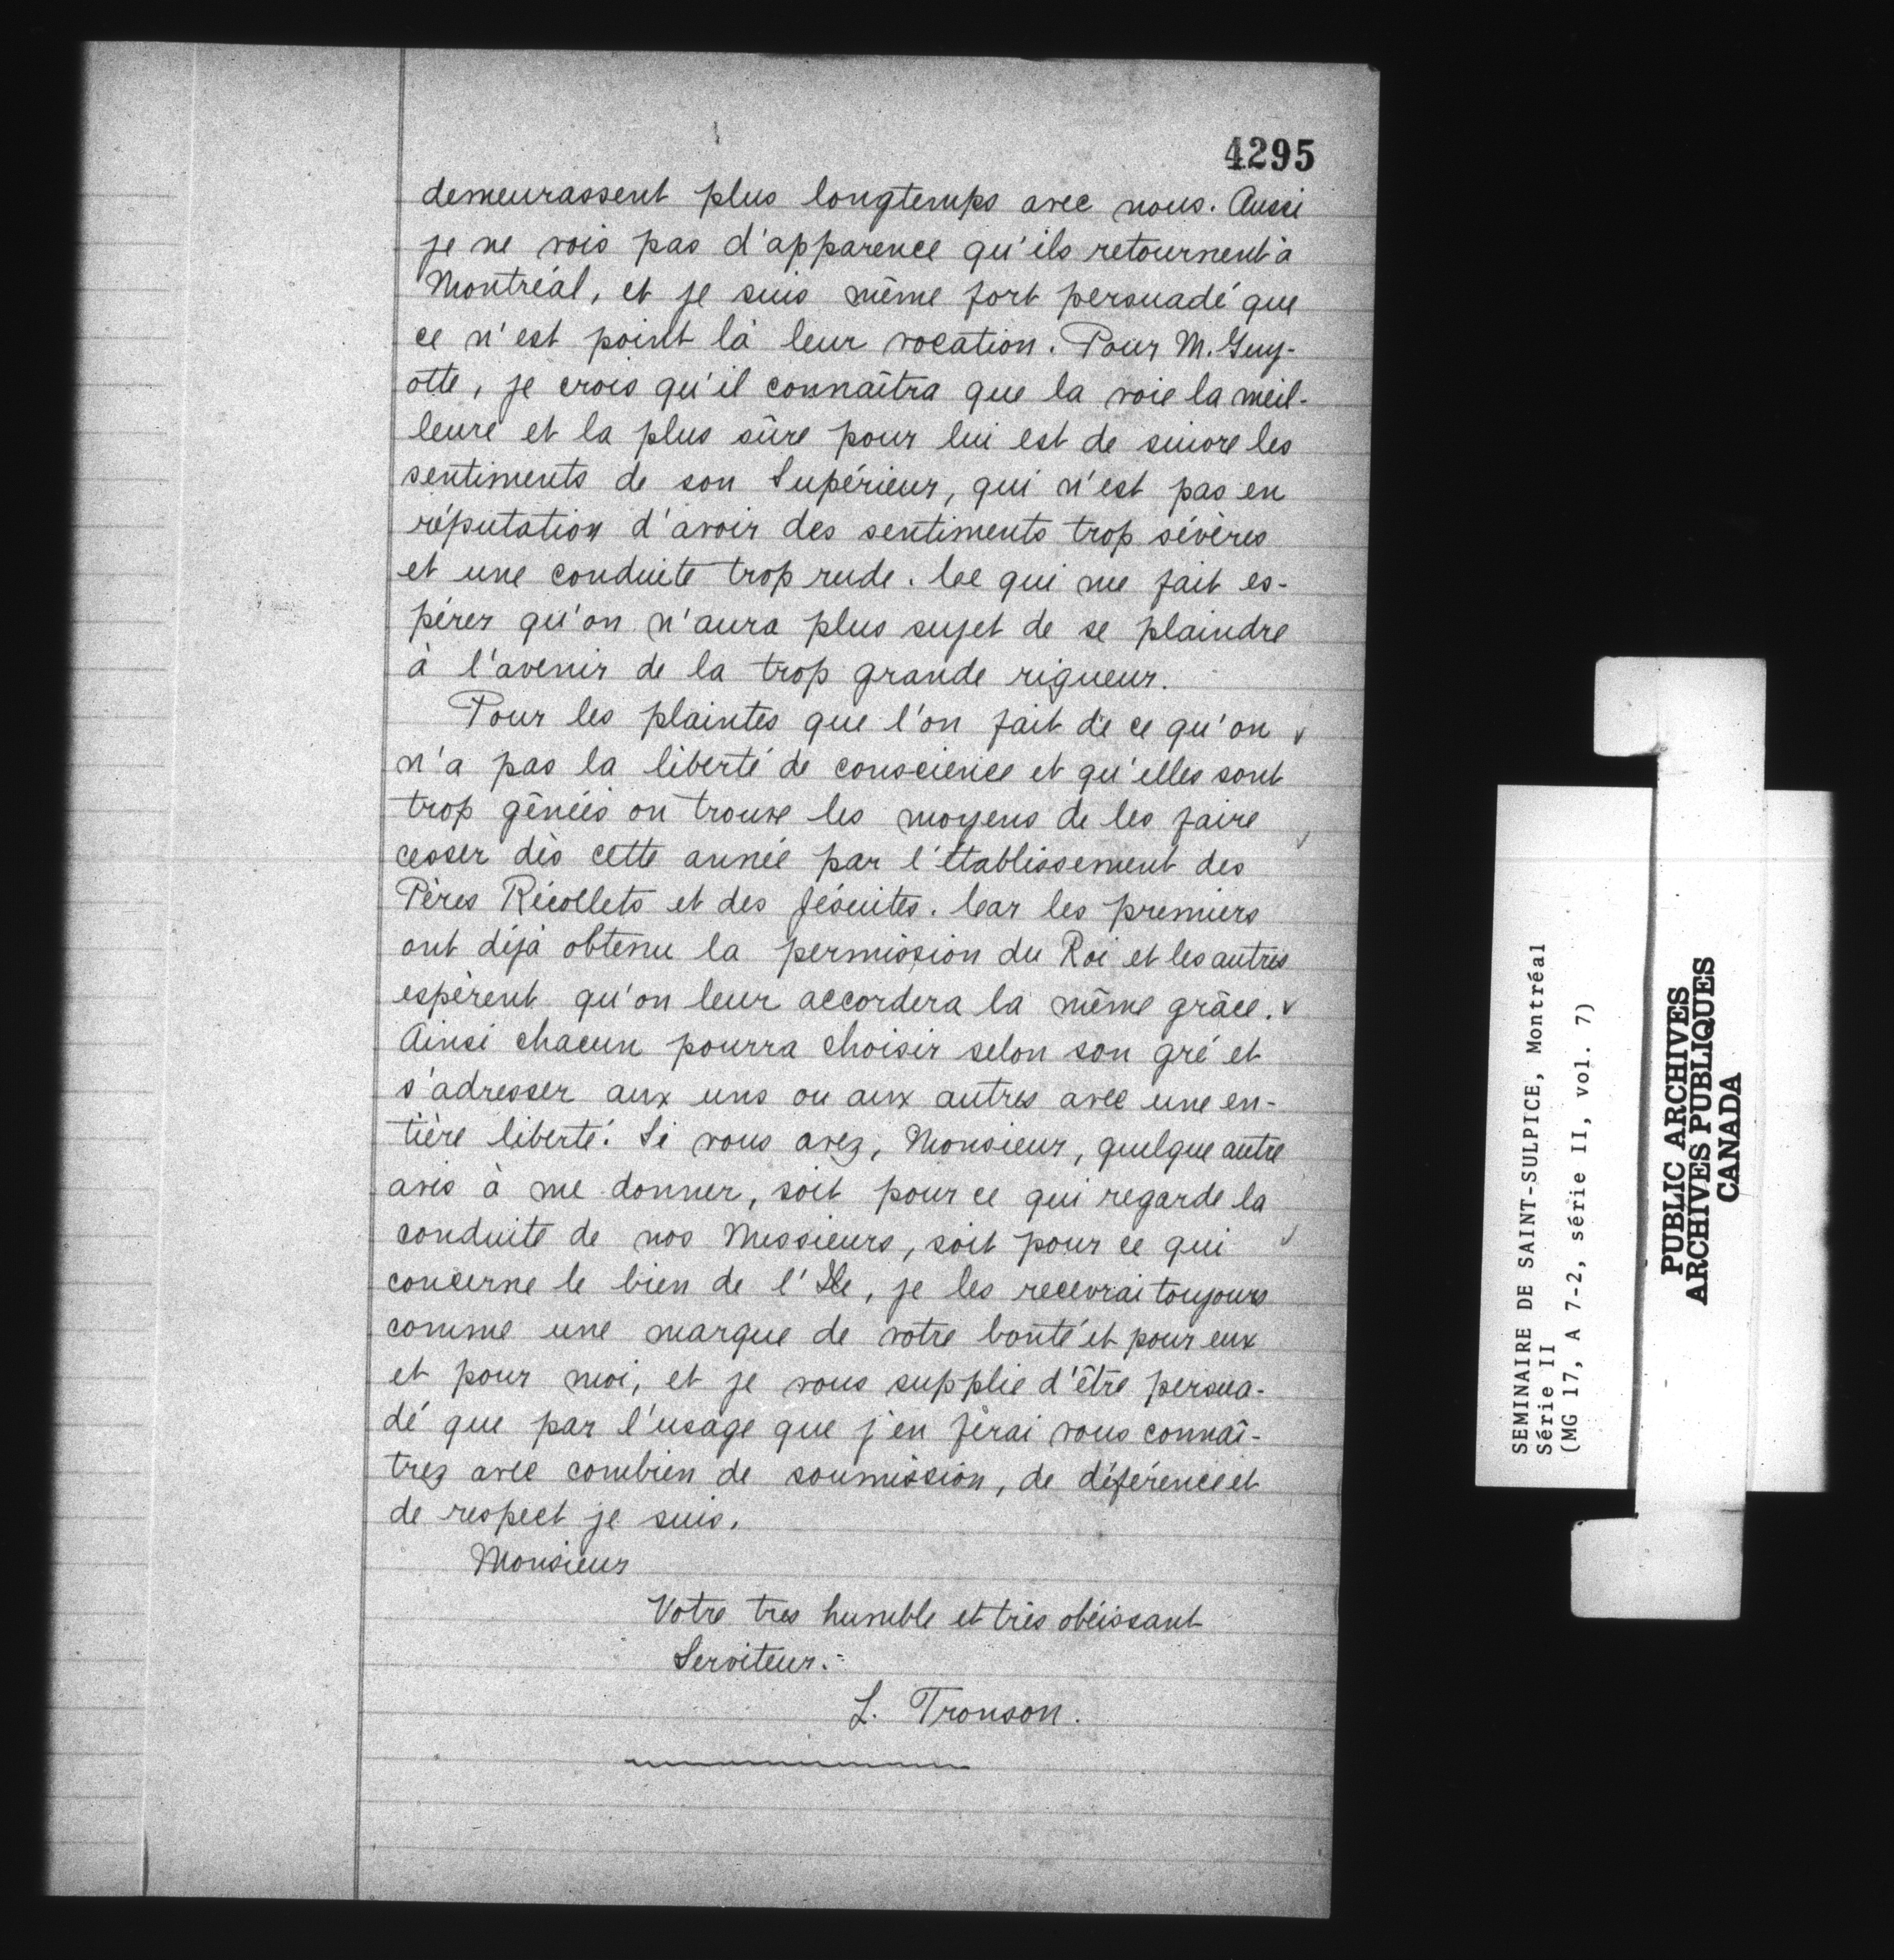 4295
demeurassent plus longtemps avec nous. Aussi
je ne vois pas d'apparence qu'ils retournent à
Montréal, et je suis même fort persuadé que
ce n'est point là leur vocation. Pour M. Guy-
otte, je crois qu'il connaîtra que la voie la meil-
leure et la plus sûre pour lui est de suivre les
sentiments de son Supérieur, qui n'est pas en
réputation d'avoir des sentiments trop sévères
et une conduite trop rude. Ce qui me fait es-
pérer qu'on n'aura plus sujet de se plaindre
à l'avenir de la trop grande rigueur.
Pour les plaintes que l'on fait de ce qu'on
n'a pas la liberté de conscience et qu'elles sont
trop gênées on trouve les moyens de les faire
cesser dès cette année par l'établissement des
Pères Récollets et des Jésuites. Car les premiers
ont déjà obtenu la permission du Roi et les autres
espèrent qu'on leur accordera la même grâce.
Ainsi chacun pourra choisir selon son gré et
s'adresser aux uns ou aux autres avec une en-
tière liberté. Si vous avez, Monsieur, quelque autre
avis à me donner, soit pour ce qui regarde la
conduite de nos Messieurs, soit pour ce qui
concerne le bien de l'Ile, je les recevrai toujours
comme une marque de votre bonté et pour eux
et pour moi, et je vous supplie d'être persua-
dé que par l'usage que j'en ferai vous connaî-
trez avec combien de soumission, de déférence et
de respect je suis,
Monsieur
Votre tres humble et très obéissant
Serviteur.
L. Tronson.
SEMINAIRE DE SAINT-SULPICE, Montréal
Série II
(MG 17, A 7-2, série II, vol. 7)
PUBLIC ARCHIVES
ARCHIVES PUBLIQUES
CANADA